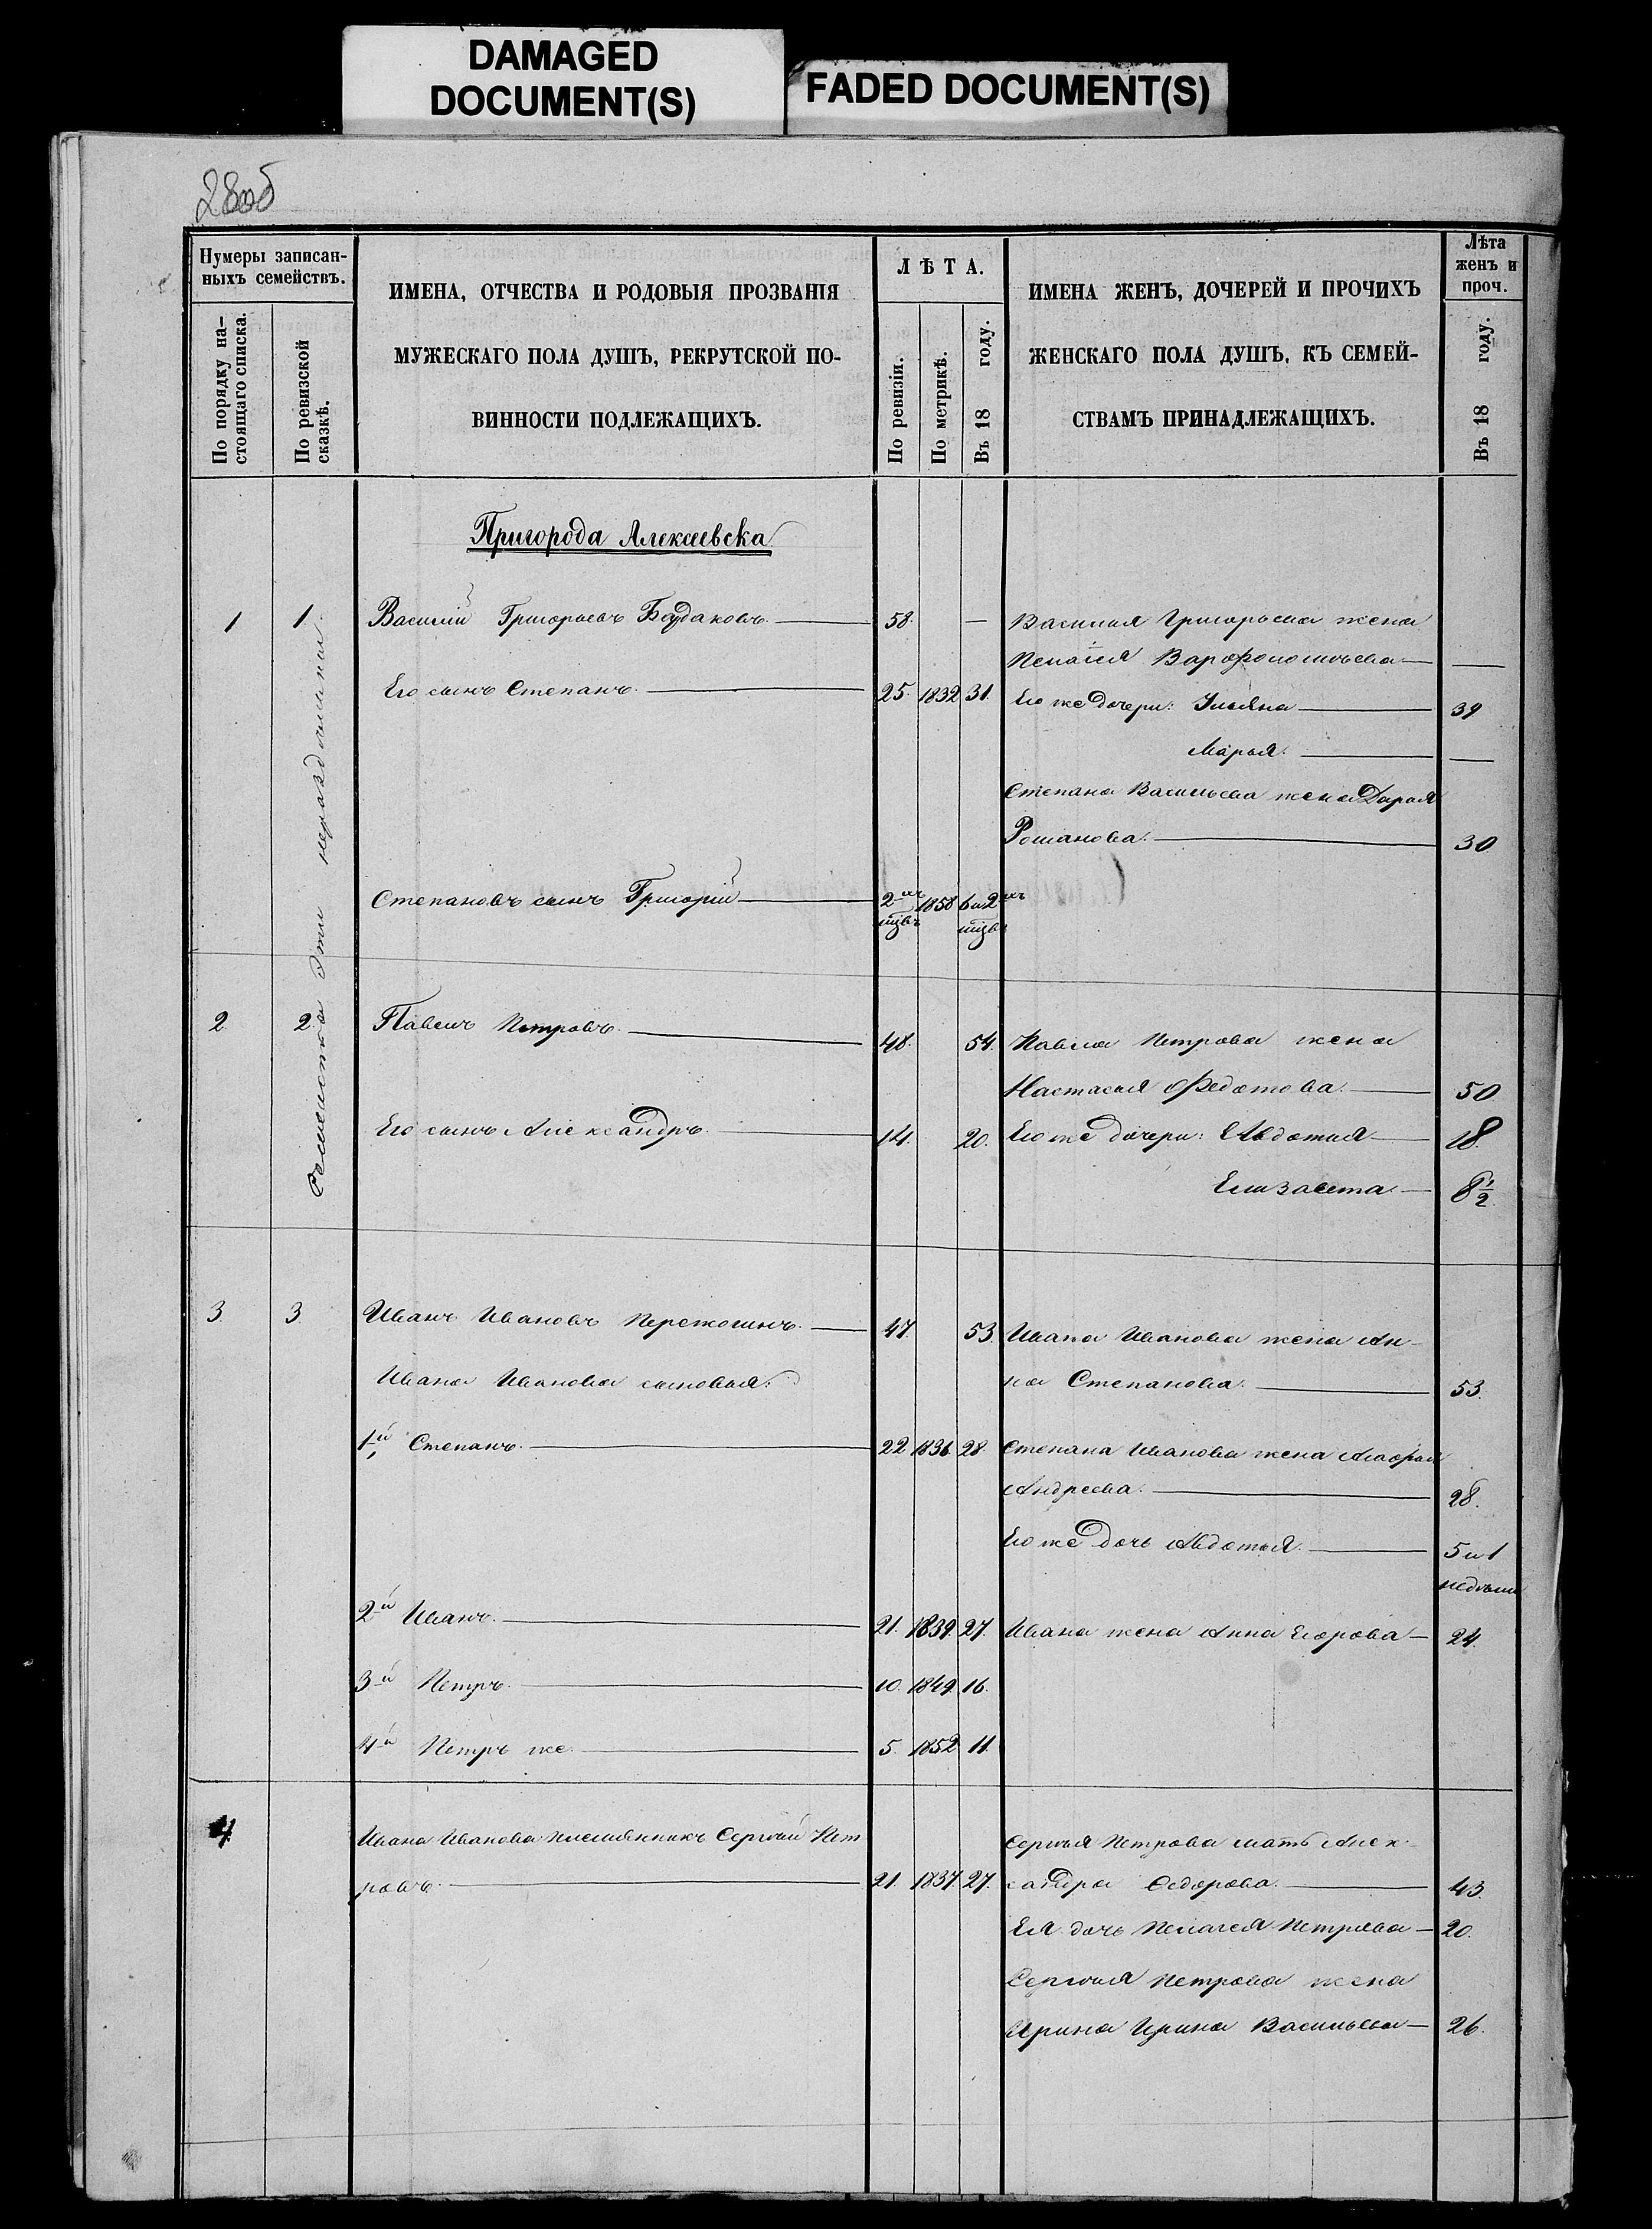 DAMAGED
DOCUMENT(S)
FADED DOCUMENT(S)
28об
Нумеры записан-
ныхъ семействъ.
По порядку на-
стоящаго списка.
По ревизской
сказкѣ.
ИМЕНА, ОТЧЕСТВА И РОДОВЫЯ ПРОЗВАНІЯ
МУЖЕСКАГО ПОЛА ДУШЪ, РЕКРУТСКОЙ ПО-
ВИННОСТИ ПОДЛЕЖАЩИХЪ.
ЛѢТА.
По ревизіи.
По метрикѣ.
Въ 18 году.
ИМЕНА ЖЕНЪ, ДОЧЕРЕЙ И ПРОЧИХЪ
ЖЕНСКАГО ПОЛА ДУШЪ, КЪ СЕМЕЙ-
СТВАМЪ ПРИНАДЛЕЖАЩИХЪ.
Лѣта
женъ и
проч.
Въ 18 году.
Пригорода Алексеевска
Семейства эти нераздельны.
1 1 Василій Григорьевъ Баудаковъ. — 58. — Василья Григорьева жена
Пелагея Варфоломѣева — —
Его сынъ Степанъ. — 25. 1832 31. Его же дочери: Ульяна — 39
Марья. — —
Степана Васильева жена Дарья
Романова. — 30
Степановъ сынъ Григорій — 2хъ мцвъ 1858 6 и 2хъ мцвъ
2 2 Павелъ Петровъ. — 48. 54. Павла Петрова жена
Настасья Федотова. — 50
Его сынъ Александръ. — 14. 20. Его же дочери: Авдотья — 18.
Елизавета — 8 1/2
3 3 Иванъ Ивановъ Пережогинъ. — 47. 53. Ивана Иванова жена Ан-
Ивана Иванова сыновья: на Степанова. — 53.
1й Степанъ. — 22 1836 28. Степана Иванова жена
Андреева. — 28.
Его же дочь Авдотья. — 5 и 1
недѣли
2й Иванъ. — 21. 1839. 27. Ивана жена Анна Егорова — 24.
3й Петръ. — 10. 1849. 16.
4й Петръ же. — 5. 1852 11.
4 Ивана Иванова племянникъ Сергѣй Пет Сергѣя Петрова мать Алек-
ровъ. — 21. 1837. 27. сандра Федорова. — 43.
Ея дочь Пелагея Петрова — 20.
Сергѣя Петрова жена
Ирина Ирина Васильева — 26.